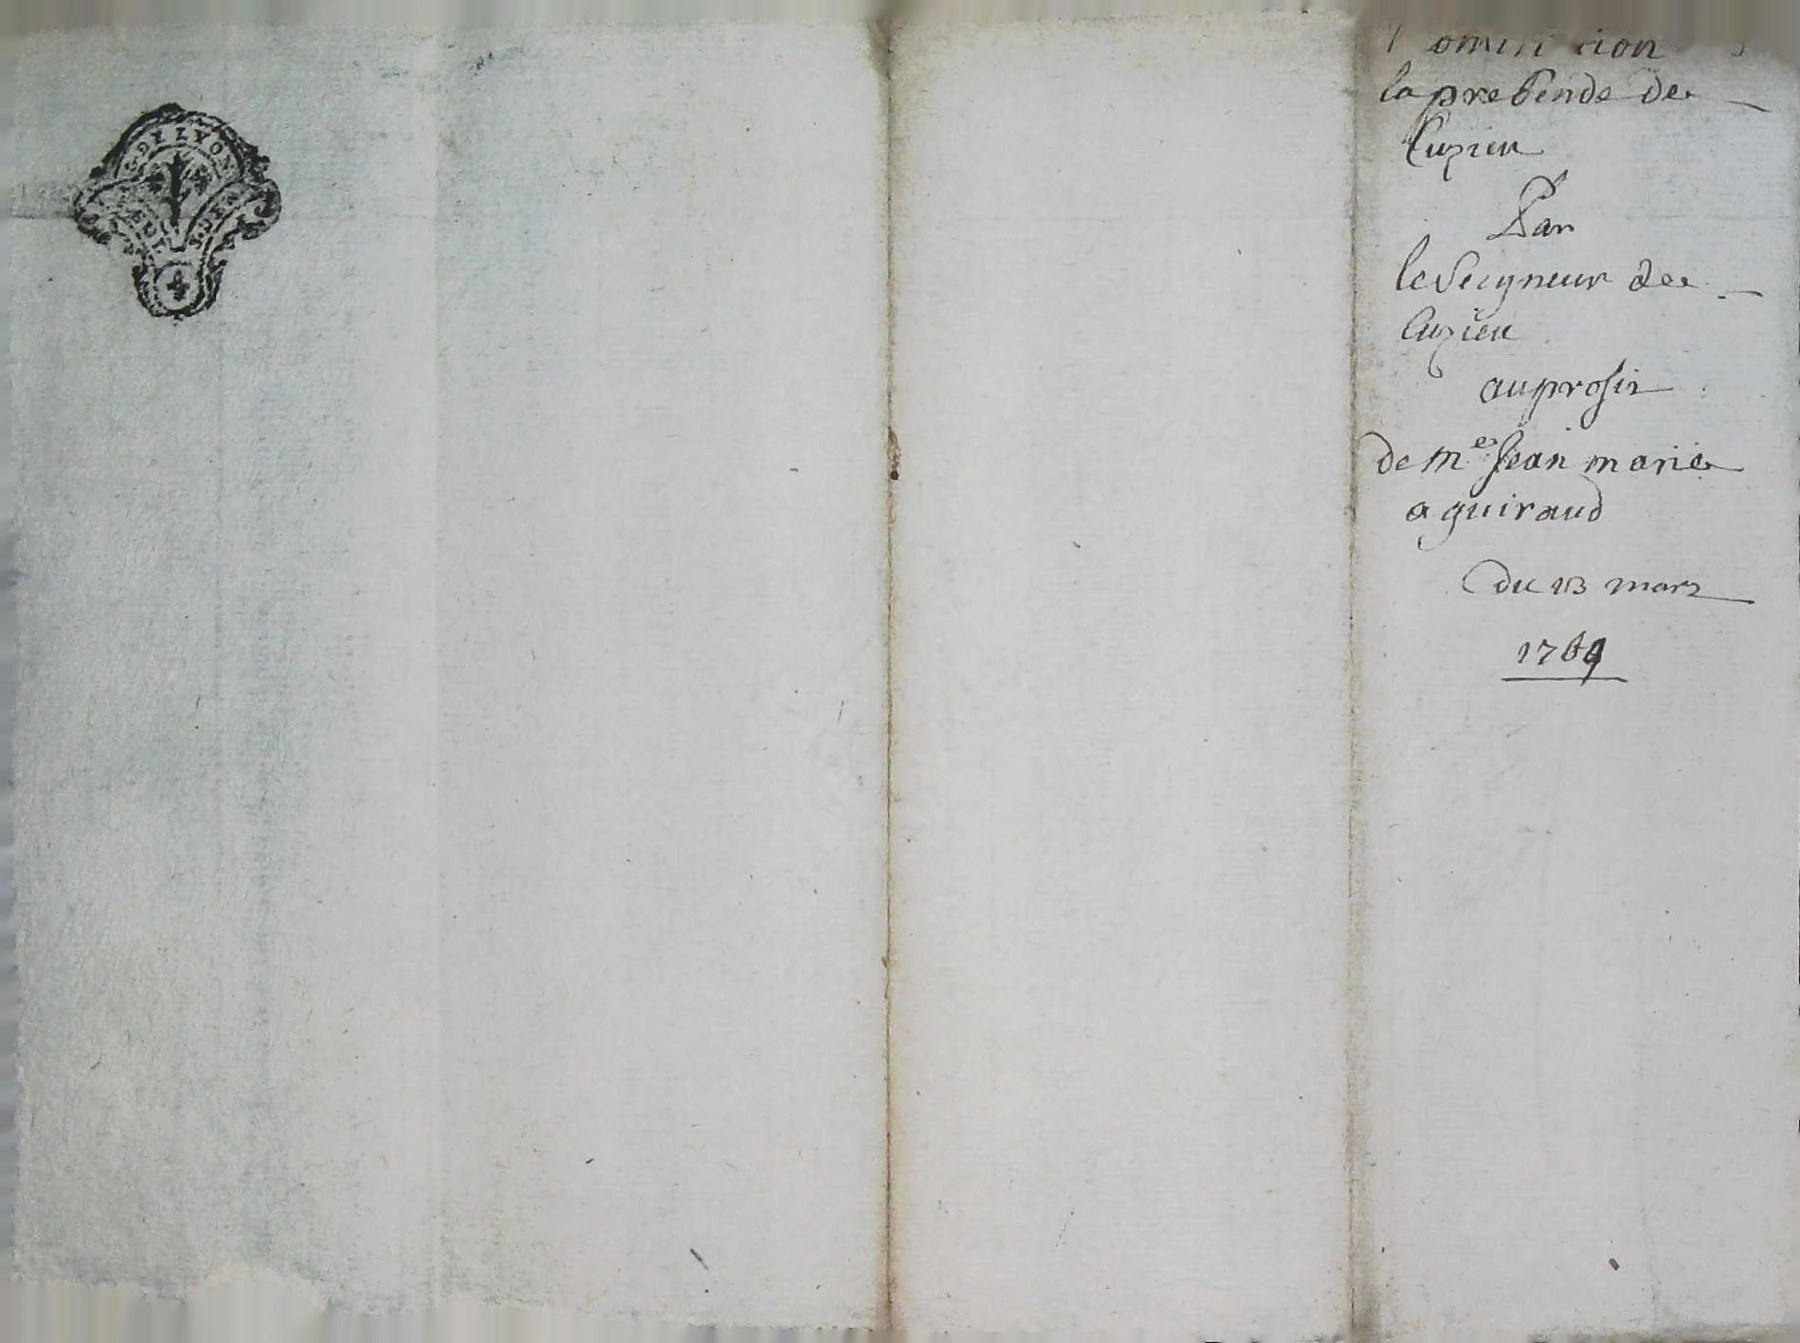 DE LYON
la prebende de
Cuzieu
Par
le Seigneur de
Cuzieu
au profit
de Me Jean marie
aguiraud
du 13 mars
1769